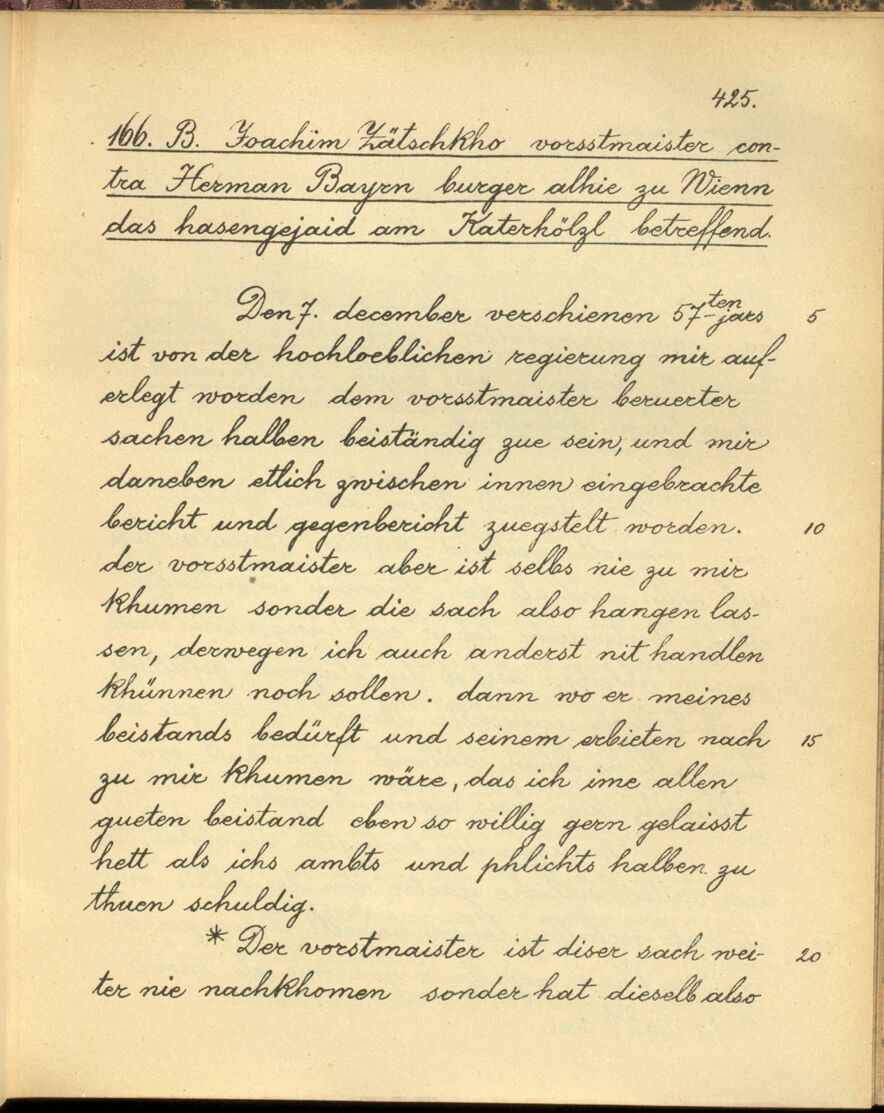 425.
166. B. Joachim Zätschkho vorsstmaister con-
tra Herman Bayrn burger alhie zu Wienn
das hasengejaid am Katerhölzl betreffend.
Den 7. december verschienen 57ten jars 5
ist von der hochloeblichen regierung mir auf-
erlegt worden dem vorsstmaister beruerter
sachen halben beiständig zue sein, und mir
daneben etlich zwischen innen eingebrachte
bericht und gegenbericht zuegstelt worden. 10
der vorsstmaister aber ist selbs nie zu mir
khumen sonder die sach also hangen las-
sen, derwegen ich auch anderst nit handlen
khünnen noch sollen. dann wo er meines
beistands bedürft und seinem erbieten nach 15
zu mir khumen wäre, das ich ime allen
gueten beistand eben so willig gern gelaisst
hett als ichs ambts und phlichts halben zu
thuen schuldig.
* Der vorstmaister ist diser sach wei- 20
ter nie nachkhomen sonder hat dieselb also